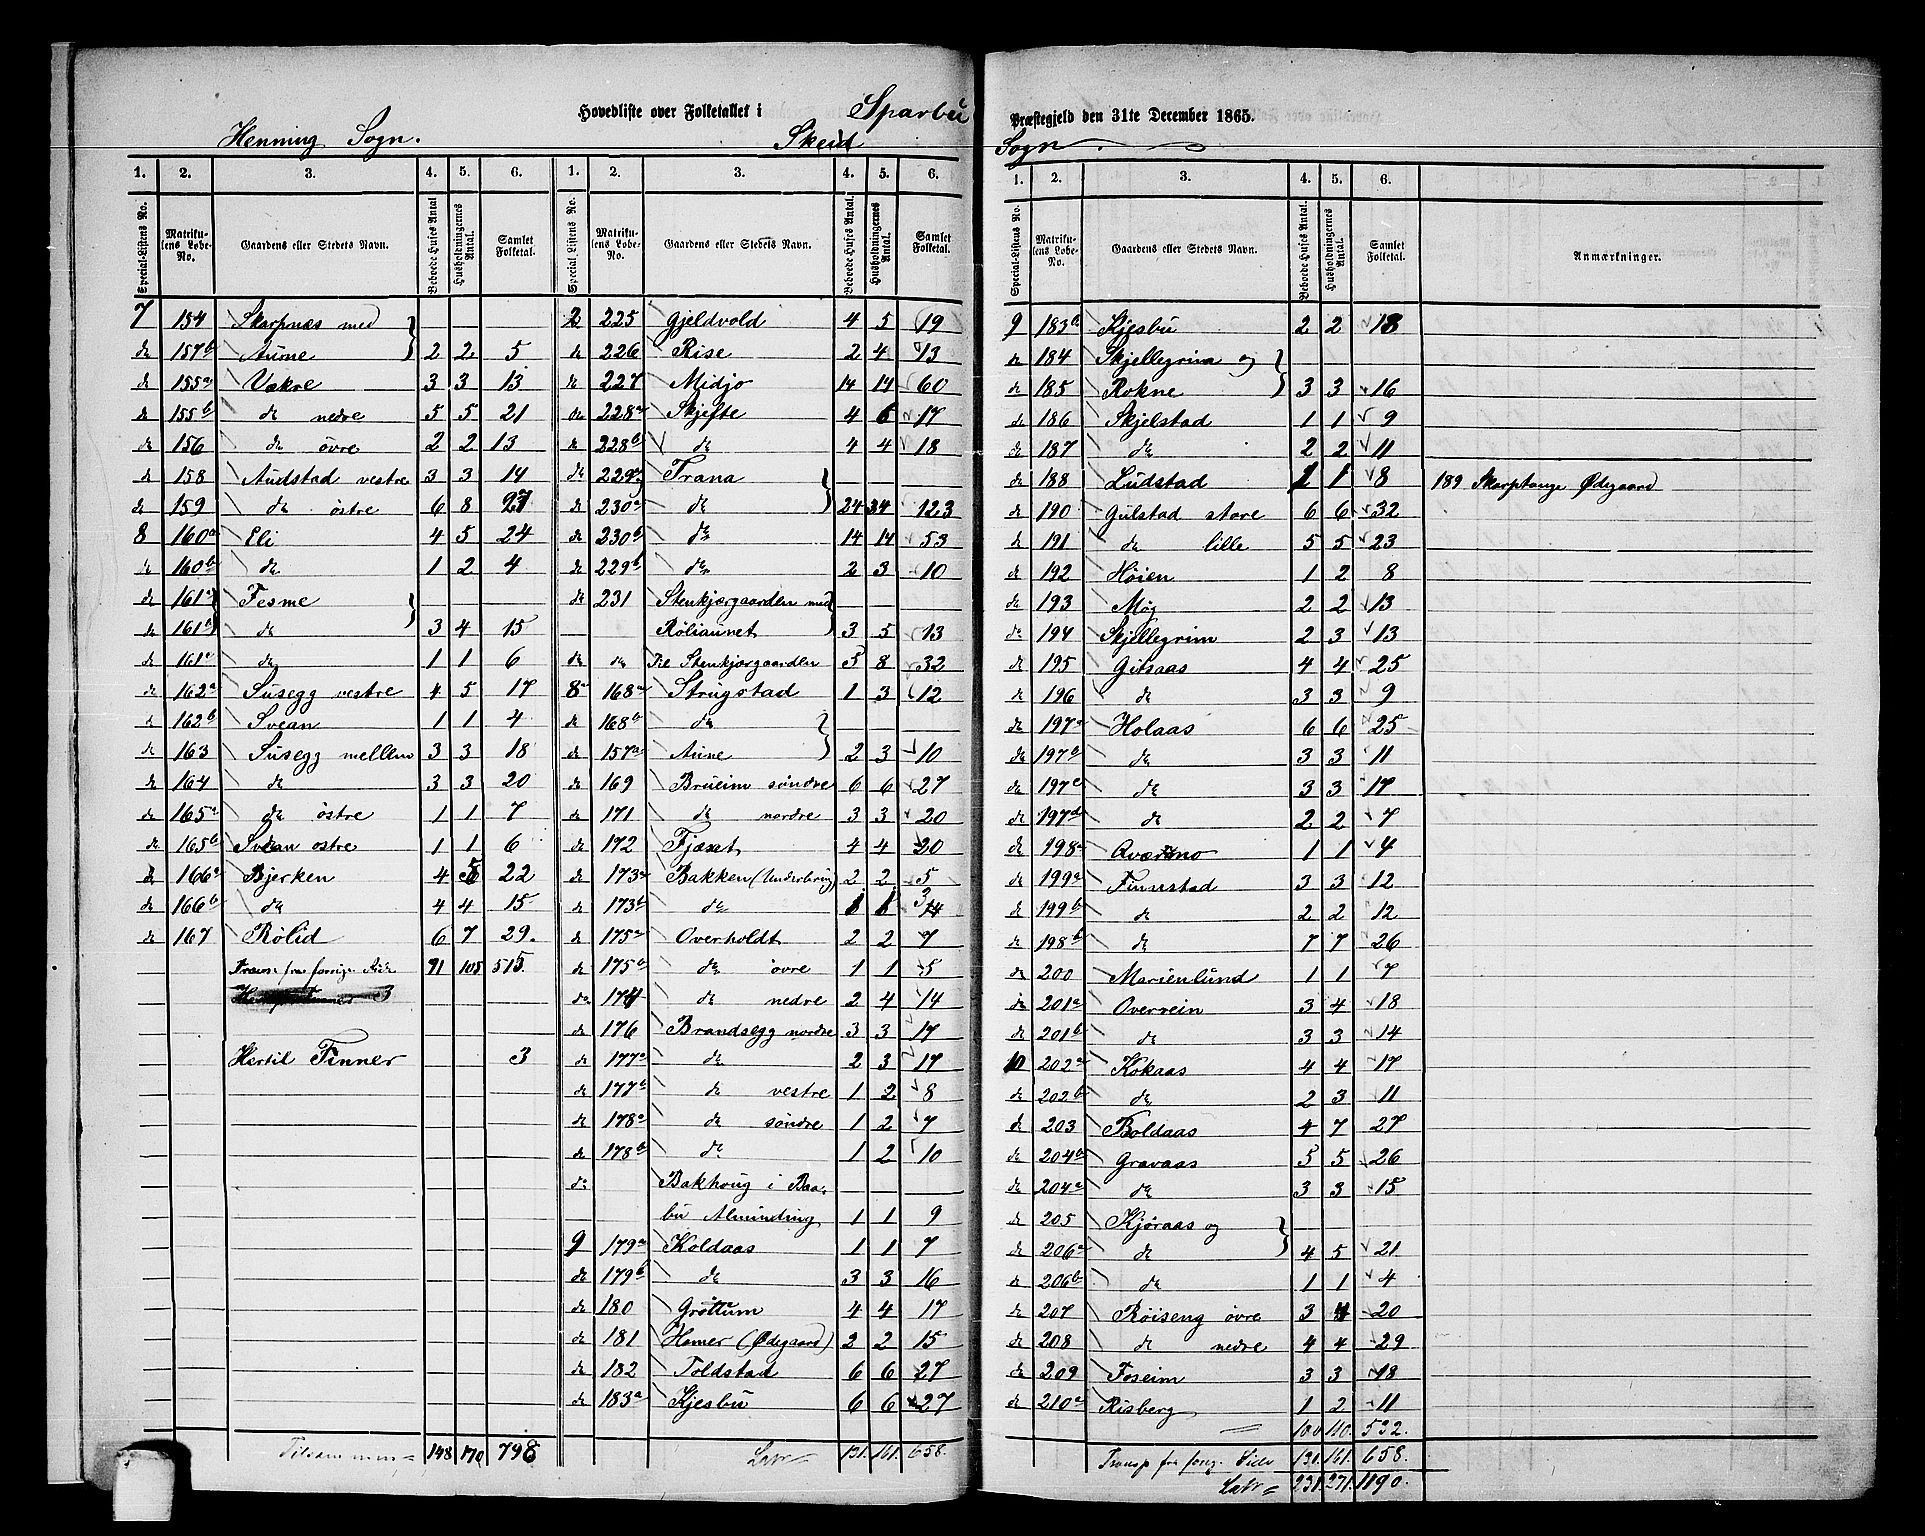 Hovedliste over Folketallet i Sparbu Præstegjeld den 31te December 1865.
Henning Sogn.
Skeid Sogn.
1. 2. 3. 4. 5. 6.
Special-Listens No. Matrikulens Løbe-No. Gaardens eller Stedets Navn. Beboede Huses Antal Husholdningernes Antal. Samlet Folketal.
7 154 Skarpnæs med
do 157b Aune 2 2 5
do 155a Vækre 3 3 13
do 155b do nedre 5 5 21
do 156 do övre 2 2 13
do 158 Audstad vestre 3 3 14
do 159 do östre 6 8 27
8 160a Eli 4 5 24
do 160b do 1 2 4
do 161a Fesme
do 161b do 3 4 15
do 161c do 1 1 6
do 162a Susegg vestre 4 5 17
do 162b Svean 1 1 4
do 163 Susegg mellem 3 3 18
do 164 do 3 3 20
do 165a do östre 1 1 7
do 165b Svean ostre 1 1 6
do 166a Bjerken 4 5 22
do 166b do 4 4 15
do 167 Rölid 6 7 29.
Transp. fra forrige Side 91 105 515.
Hertil Finner 3
Tilsammen = 148 170 798
1. 2. 3. 4. 5. 6.
Special Listens No. Matrikulens Løbe-No. Gaardens eller Stedets Navn. Beboede Huses Antal. Husholdningernes Antal. Samlet Folketal.
2 225 Gjeldvold 4 5 19
do 226 Rise 2 4 13
do 227 Midjo 14 14 60
do 228a Skjefte 4 6 17
do 228b do 4 4 18
do 229a Trana
do 230a do 24 34 123
do 230b do 14 14 53
do 229b do 2 3 10
do 231 Stenkjærgaarden med
Röliaunet 3 5 13
do do Til Stenkjærgaarden 5 8 32
8 168a Strugstad 1 3 12
do 168b do
do 157a Aune 2 3 10
do 169 Brueim söndre 6 6 27
do 171 do nordre 3 3 20
do 172 Fjæset 4 4 20
do 173a Bakken (Underbring) 2 2 5
do 173b do 1 1 3
do 175a Overholdt 2 2 7
do 175b do övre 1 1 5
do 174 do nedre 2 4 14
do 176 Brandsegg nordre 3 3 17
do 177a do 2 3 17
do 177b do vestre 1 2 8
do 178a do söndre 1 2 7
do 178b do 1 2 10
do Bakhoug i Baa-
bu Alminding 1 1 9
9 179a Koldaas 1 1 7
do 179b do 3 3 16
do 180 Gröttum 4 4 17
do 181 Homer (Ödegaard) 2 2 15
do 182 Toldstad 6 6 27
do 183a Kjesbu 6 6 27
Latr = 131. 161. 658.
1. 2. 3. 4. 5. 6.
Special-Listens No. Matrikulens Løbe-No. Gaardens eller Stedets Navn. Beboede Huses Antal. Husholdningernes Antal. Samlet Folketal. Anmærkninger.
9 183b Kjesbu 2 2 18
do 184 Skjellegrina og
do 185 Rokne 3 3 16
do 186 Skjelstad 1 1 9
do 187 do 2 2 11
do 188 Ludstad 1 1 8 189 Skarptange Ødegaard
do 190 Gulstad store 6 6 32
do 191 do lille 5 5 23
do 192 Höien 1 2 8
do 193 Møg 2 2 13
do 194 Skjellegrim 2 3 13
do 195 Gilsaas 4 4 25
do 196 do 3 3 9
do 197a Holaas 6 6 25
do 197b do 3 3 11
do 197c do 3 3 17
do 197d do 2 2 7
do 198a Qværno 1 1 4
do 199a Finnstad 3 3 12
do 199b do 2 2 12
do 198b do 7 7 26
do 200 Marienlund 1 1 7
do 201a Overrein 3 4 18
do 201b do 3 3 14
10 202a Kokaas 4 4 17
do 202b do 2 3 11
do 203 Boldaas 4 7 27
do 204b Gravaas 5 5 26
do 204a do 3 3 15
do 205 Kjöraas og
do 206a do 4 5 21
do 206b do 1 1 4
do 207 Röiseng övre 3 4 20
do 208 do nedre 4 4 29
do 209 Foseim 3 3 18
do 210a Risberg 1 2 11
100 110. 532.
Transp fra forrig. Side 131. 161. 658.
Latr = 231. 271. 1190.